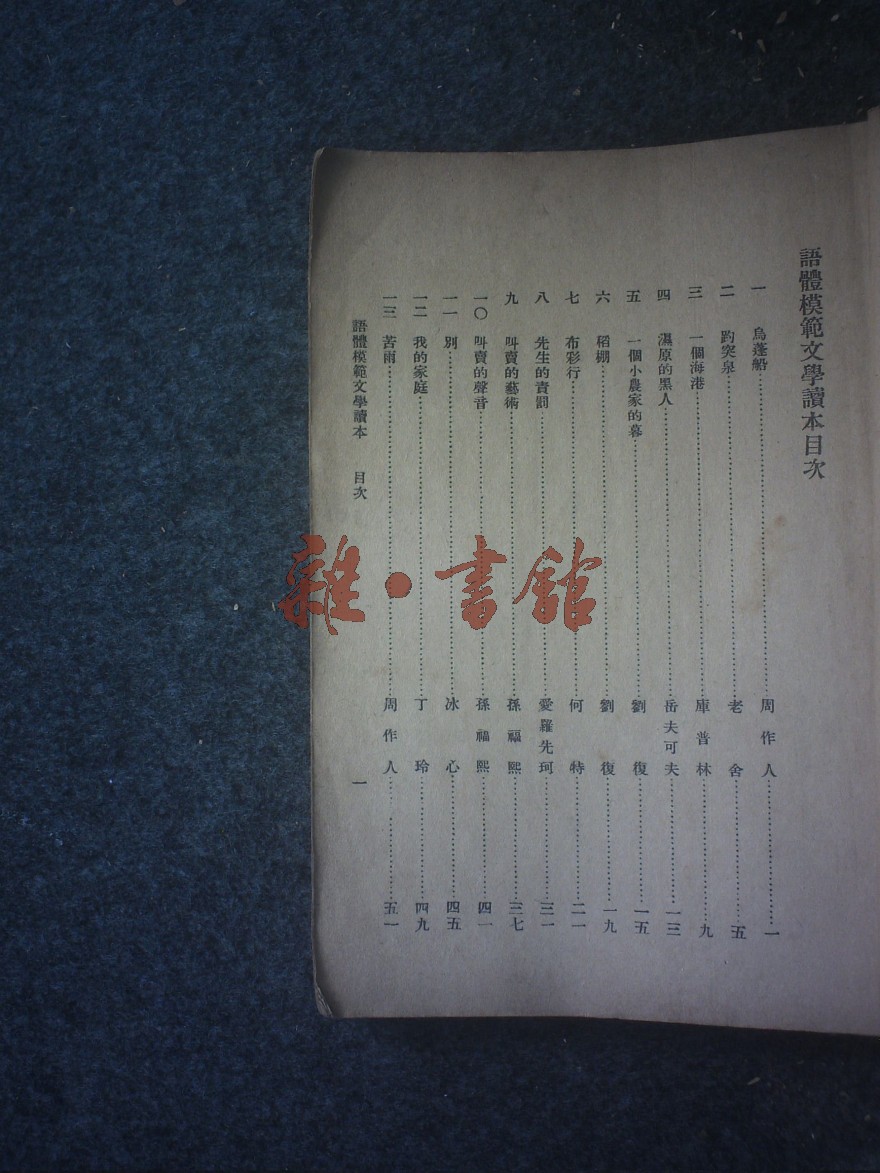 語體模範文學讀本目次
一 烏蓬船……周作人……一
二 趵突泉……老舍……五
三 一個海港……庫普林……九
四 濕原的黑人……岳夫可夫……一三
五 一個小農家的暮……劉復……一五
六 稻棚……劉復……一九
七 布彩行……何特……二一
八 先生的責罰……愛羅先珂……三一
九 叫賣的藝術……孫福熙……三七
一〇 叫賣的聲音……孫福熙……四一
一一 別……冰心……四五
一二 我的家庭……丁玲……四九
一三 苦雨……周作人……五一
語體模範文學讀本 目次 一
雜·書館